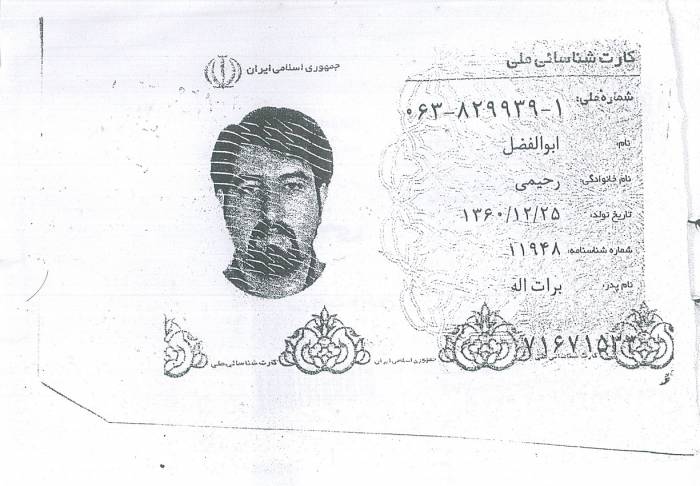 کارت شناسائی ملی
جمهوری اسلامی ایران
شماره ملی: ۰۶۳-۸۲۹۹۳۹-۱
نام: ابوالفضل
نام خانوادگی: رحیمی
تاریخ تولد: ۱۳۶۰/۱۲/۲۵
شماره شناسنامه: ۱۱۹۴۸
نام پدر: برات اله
۷۱۶۷۱۵۳۳
کارت شناسائی ملی
جمهوری اسلامی ایران
کارت شناسائی ملی